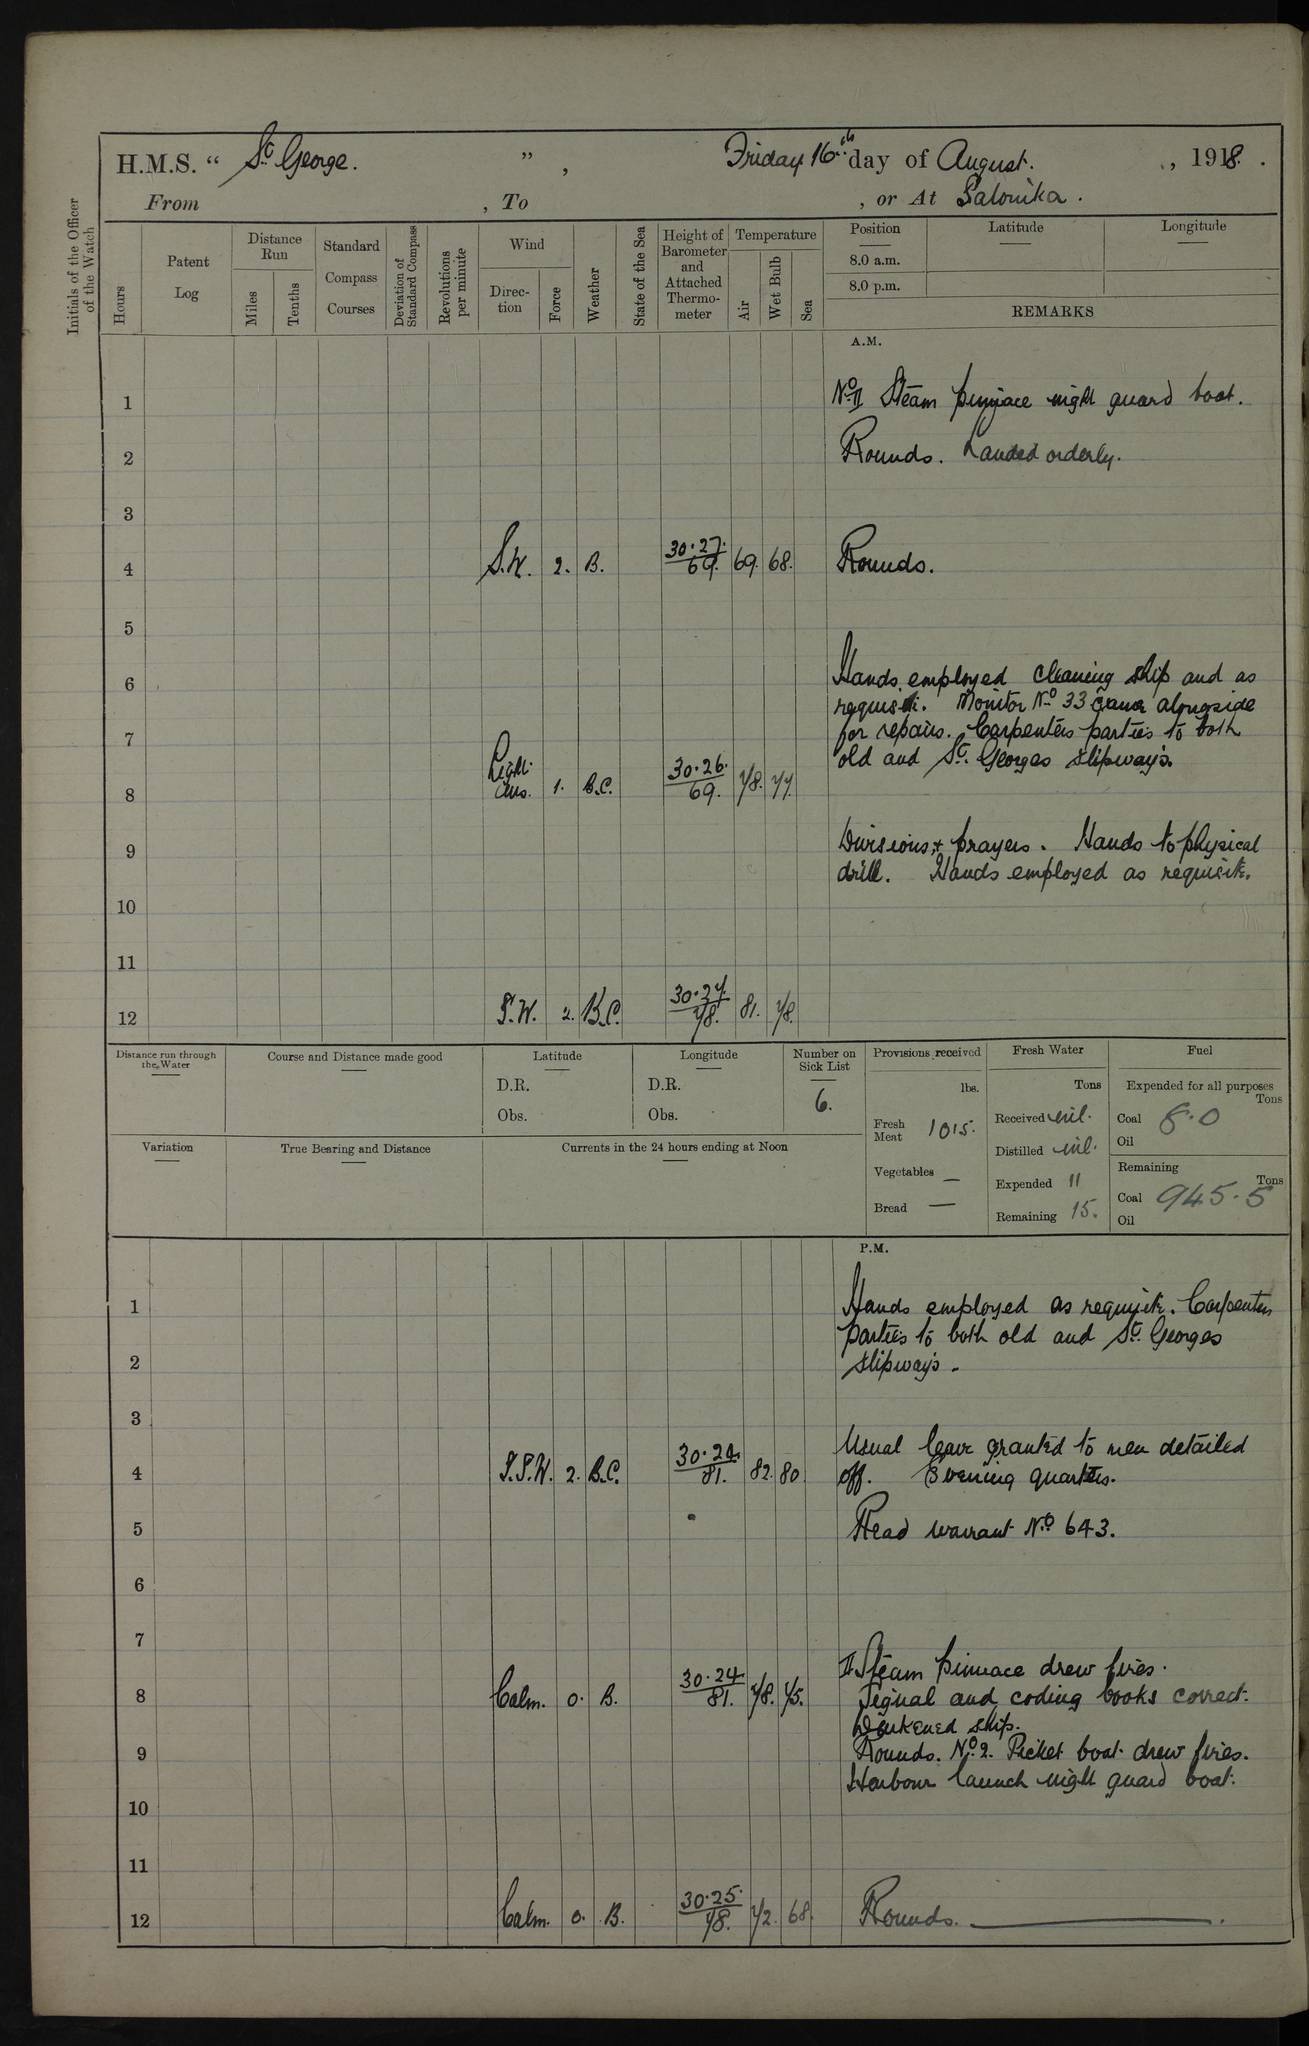 H.M.S. “ St. George. ”, Friday 16th day of August., 1918.
From , To , or At Salonika.
Initials of the Officer of the Watch
Hours
Patent Log
Distance Run
Miles
Tenths
Standard Compass Courses
Deviation of Standard Compass
Revolutions per minute
Wind
Direction
Force
Weather
State of the Sea
Height of Barometer and Attached Thermometer
Temperature
Air
Wet Bulb
Sea
Position Latitude Longitude
8.0 a.m.
8.0 p.m.
REMARKS
A.M.
1 No. II Steam pinnace night guard boat.
2 Rounds. Landed orderly.
3
4 S.W. 2. B. 30.27. 69. 69. 68. Rounds.
5
6 Hands employed cleaning ship and as
requisite. Monitor No. 33 came alongside
7 for repairs. Carpenters parties to both
old and St. Georges slipways.
8 Light airs. 1. B.C. 30.26. 69. 78. 77.
9 Divisions + prayers. Hands to physical
drill. Hands employed as requisite.
10
11
12 S.W. 2. B.C. 30.27. 78. 81. 78.
Distance run through the Water
Course and Distance made good
Latitude
D.R.
Obs.
Longitude
D.R.
Obs.
Number on Sick List
6.
Provisions received
lbs.
Fresh Meat 1015.
Vegetables —
Bread —
Fresh Water
Tons
Received nil.
Distilled nil.
Expended 11
Remaining 15.
Fuel
Expended for all purposes
Tons
Coal 8.0
Oil
Remaining
Tons
Coal 945.5
Oil
Variation
True Bearing and Distance
Currents in the 24 hours ending at Noon
P.M.
1 Hands employed as requisite. Carpenters
parties to both old and St. Georges
2 slipways.
3
Usual leave granted to men detailed
4 S.S.W. 2. B.C. 30.24. 81. 82. 80. off. Evening quarters.
5 Read warrant No. 643.
6
7
II Steam pinnace drew fires.
8 Calm. 0. B. 30.24 81. 78. 75. Signal and coding books correct.
Darkened ship.
9 Rounds. No. 2. Picket boat drew fires.
Harbour launch night guard boat.
10
11
12 Calm. 0. B. 30.25. 78. 72. 68. Rounds.